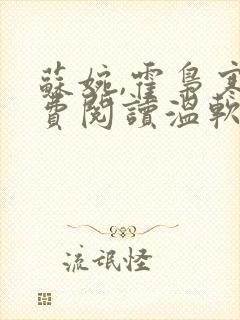 蘇婉,霍梟寒
費閱讀溫軟
流氓怪